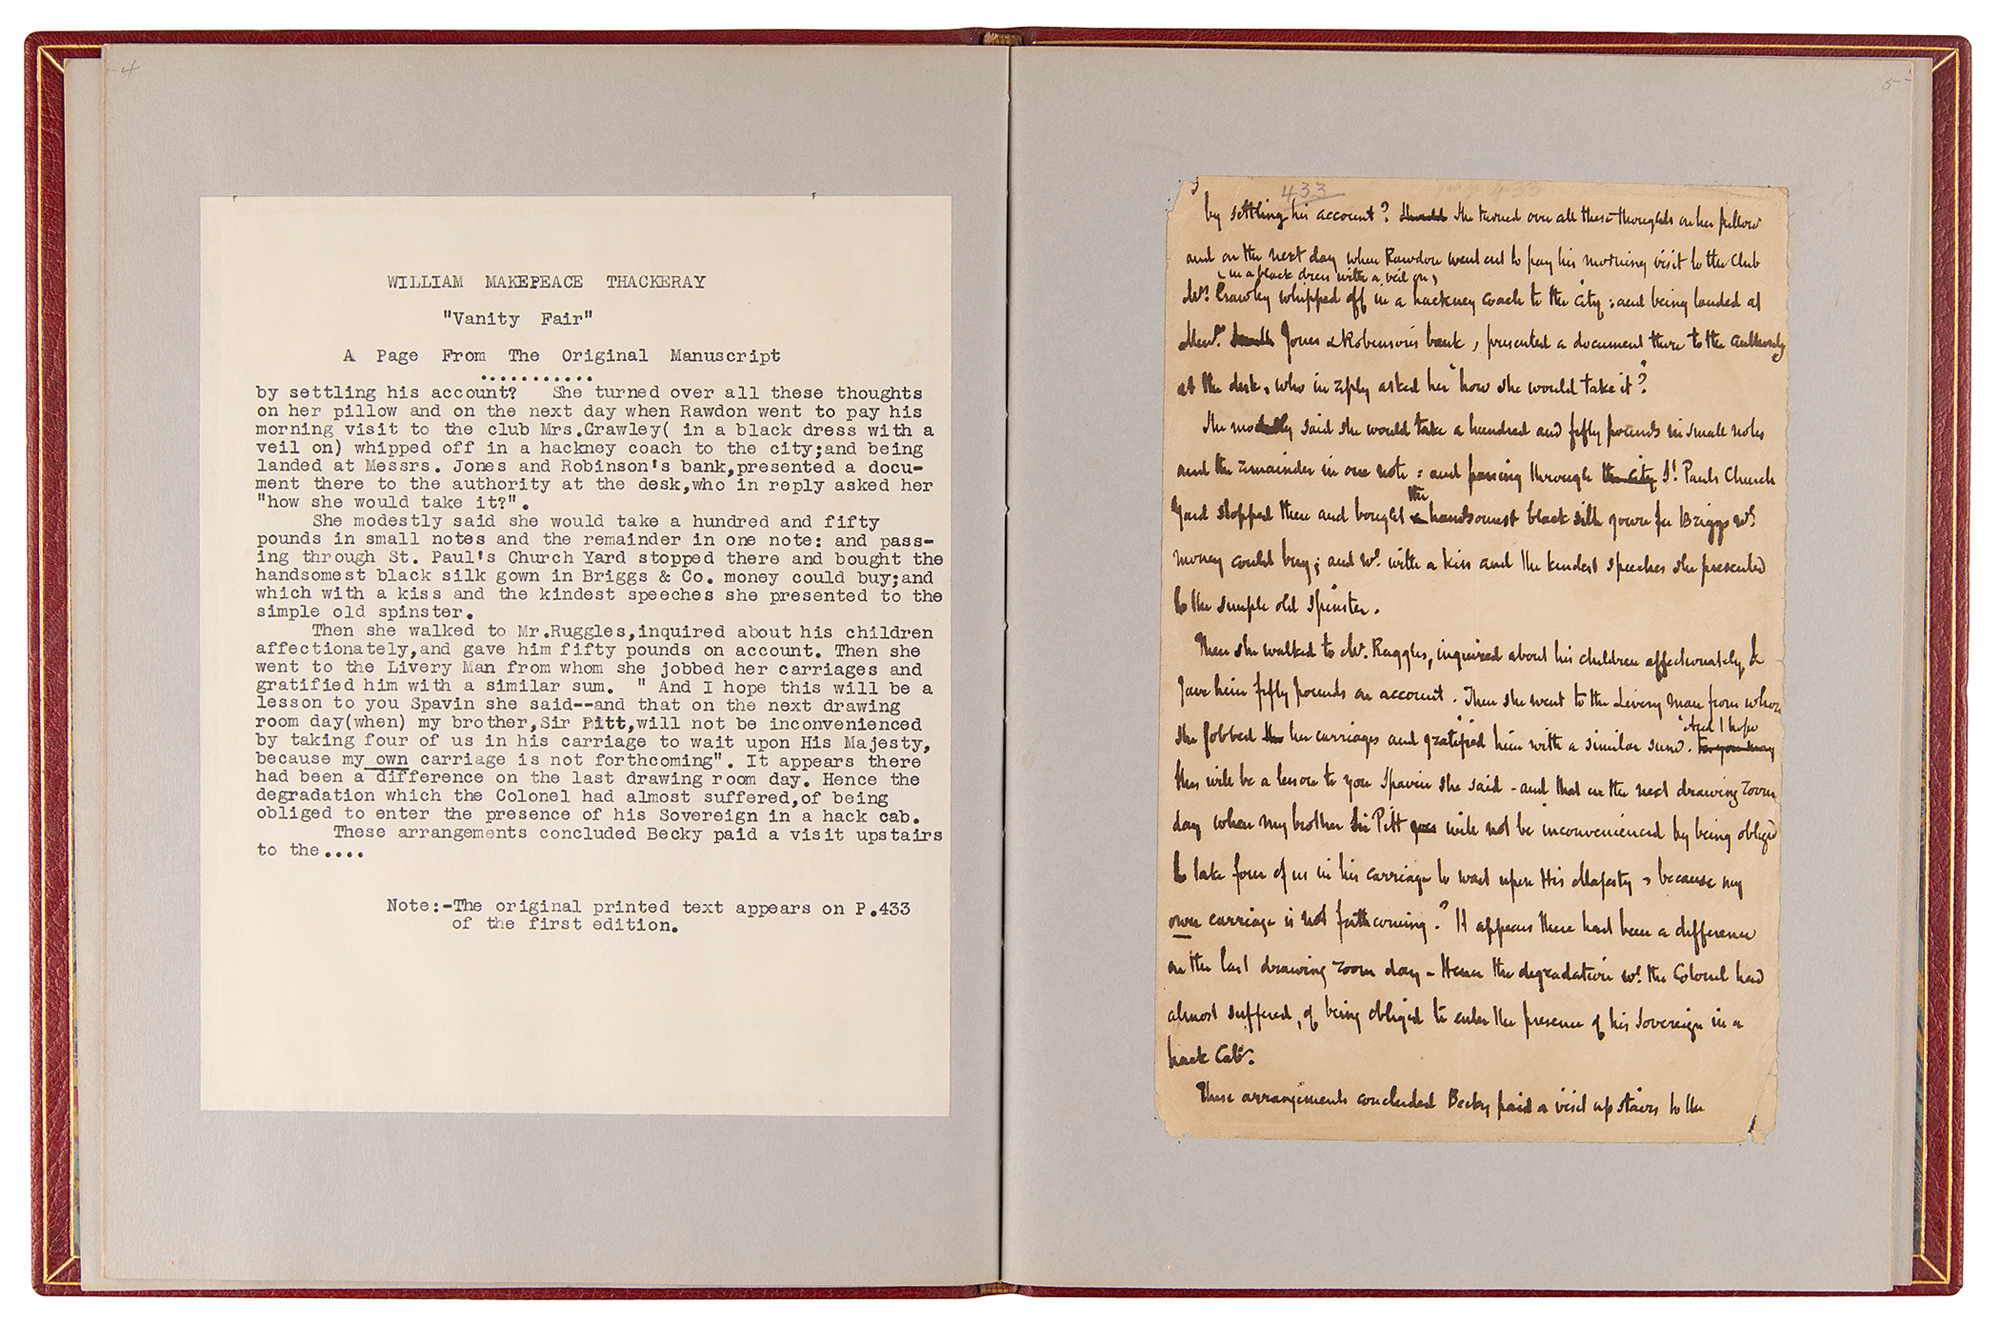 4
WILLIAM MAKEPEACE THACKERAY
"Vanity Fair"
A Page From The Original Manuscript
...........
by settling his account? She turned over all these thoughts
on her pillow and on the next day when Rawdon went to pay his
morning visit to the club Mrs.Crawley( in a black dress with a
veil on) whipped off in a hackney coach to the city;and being
landed at Messrs. Jones and Robinson's bank,presented a docu-
ment there to the authority at the desk,who in reply asked her
"how she would take it?".
She modestly said she would take a hundred and fifty
pounds in small notes and the remainder in one note: and pass-
ing through St. Paul's Church Yard stopped there and bought the
handsomest black silk gown in Briggs & Co. money could buy;and
which with a kiss and the kindest speeches she presented to the
simple old spinster.
Then she walked to Mr.Ruggles,inquired about his children
affectionately,and gave him fifty pounds on account. Then she
went to the Livery Man from whom she jobbed her carriages and
gratified him with a similar sum. " And I hope this will be a
lesson to you Spavin she said--and that on the next drawing
room day(when) my brother,Sir Pitt,will not be inconvenienced
by taking four of us in his carriage to wait upon His Majesty,
because my own carriage is not forthcoming". It appears there
had been a difference on the last drawing room day. Hence the
degradation which the Colonel had almost suffered,of being
obliged to enter the presence of his Sovereign in a hack cab.
These arrangements concluded Becky paid a visit upstairs
to the....
Note:-The original printed text appears on P.433
of the first edition.
5
433
by settling his account? She turned over all these thoughts on her pillow
and on the next day when Rawdon went out to pay his morning visit to the Club
(in a black dress with a veil on)
Mrs. Crawley whipped off in a hackney coach to the City; and being landed at
Messrs. Jones & Robinson's bank, presented a document there to the authority
at the desk, who in reply asked her "how she would take it?"
She modestly said she would take a hundred and fifty pounds in small notes
and the remainder in one note: and passing through the City St. Pauls Church
the
Yard stopped there and bought handsomest black silk gown for Briggs wh.
money could buy; and wh. with a kiss and the kindest speeches she presented
to the simple old spinster.
Then she walked to Mr. Raggles, inquired about his children affectionately, &
gave him fifty pounds on account. Then she went to the Livery man from whom
"And I hope
she jobbed her carriages and gratified him with a similar sum.
this will be a lesson to you Spavin she said - and that on the next drawing room
day when my brother Sir Pitt will not be inconvenienced by being obliged
to take four of us in his carriage to wait upon His Majesty, because my
own carriage is not forthcoming." It appears there had been a difference
on the last drawing room day - Hence the degradation wh. the Colonel had
almost suffered, of being obliged to enter the presence of his Sovereign in a
hack Cab.
These arrangements concluded Becky paid a visit up stairs to the